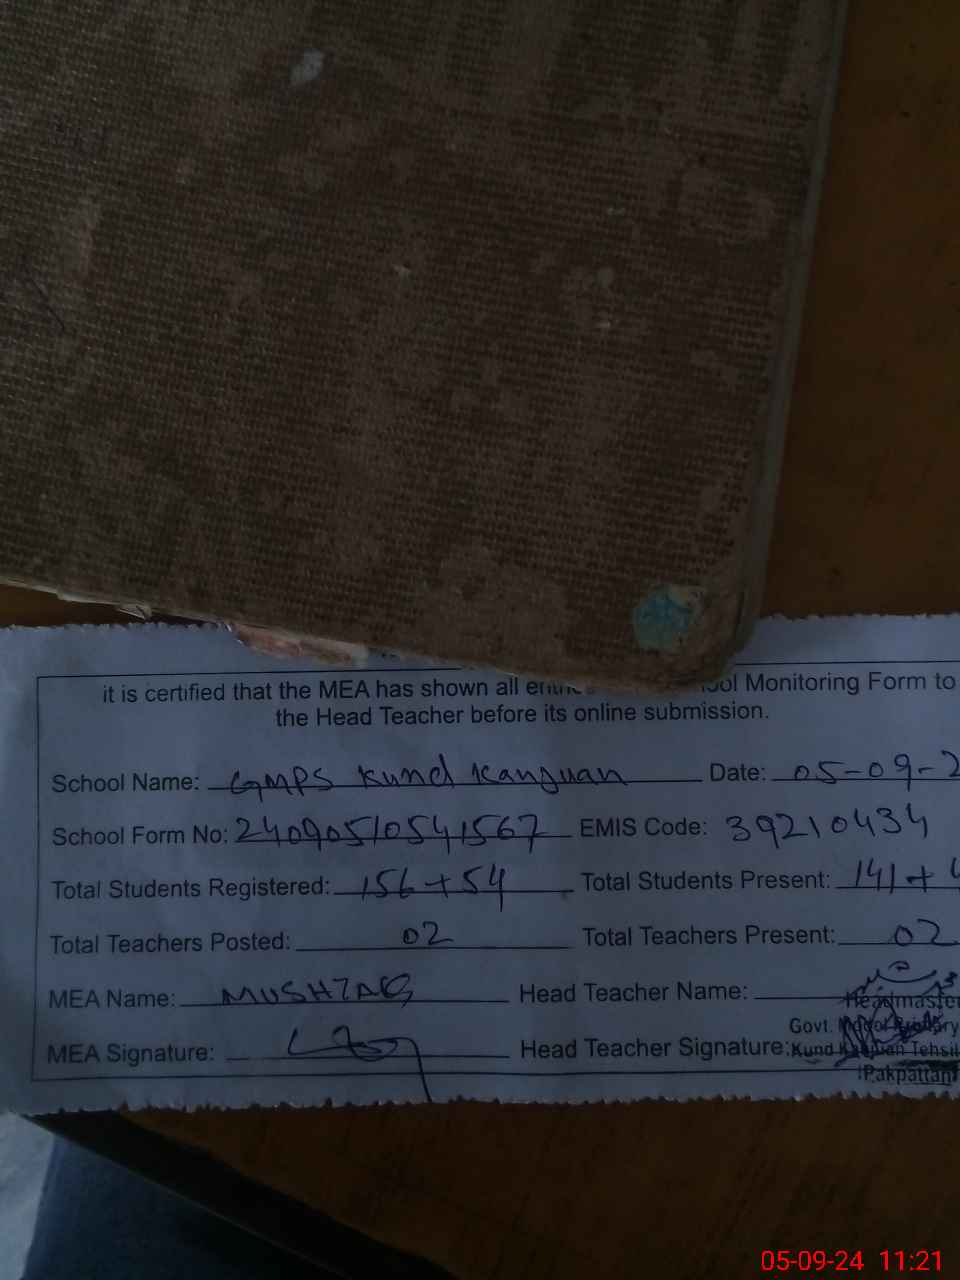 it is certified that the MEA has shown all Monitoring Form to
the Head Teacher before its online submission.
School Name: GMPS Kund Kanjuan Date: 05-09-2
School Form No: 24090510541567 EMIS Code: 39210434
Total Students Registered: 156+54 Total Students Present: 141+4
Total Teachers Posted: 02 Total Teachers Present: 02
MEA Name: MUSHTAQ Head Teacher Name:
Headmaster
Govt. Model Primary
MEA Signature: Head Teacher Signature: Kund Tehsil
Pakpattan
05-09-24 11:21